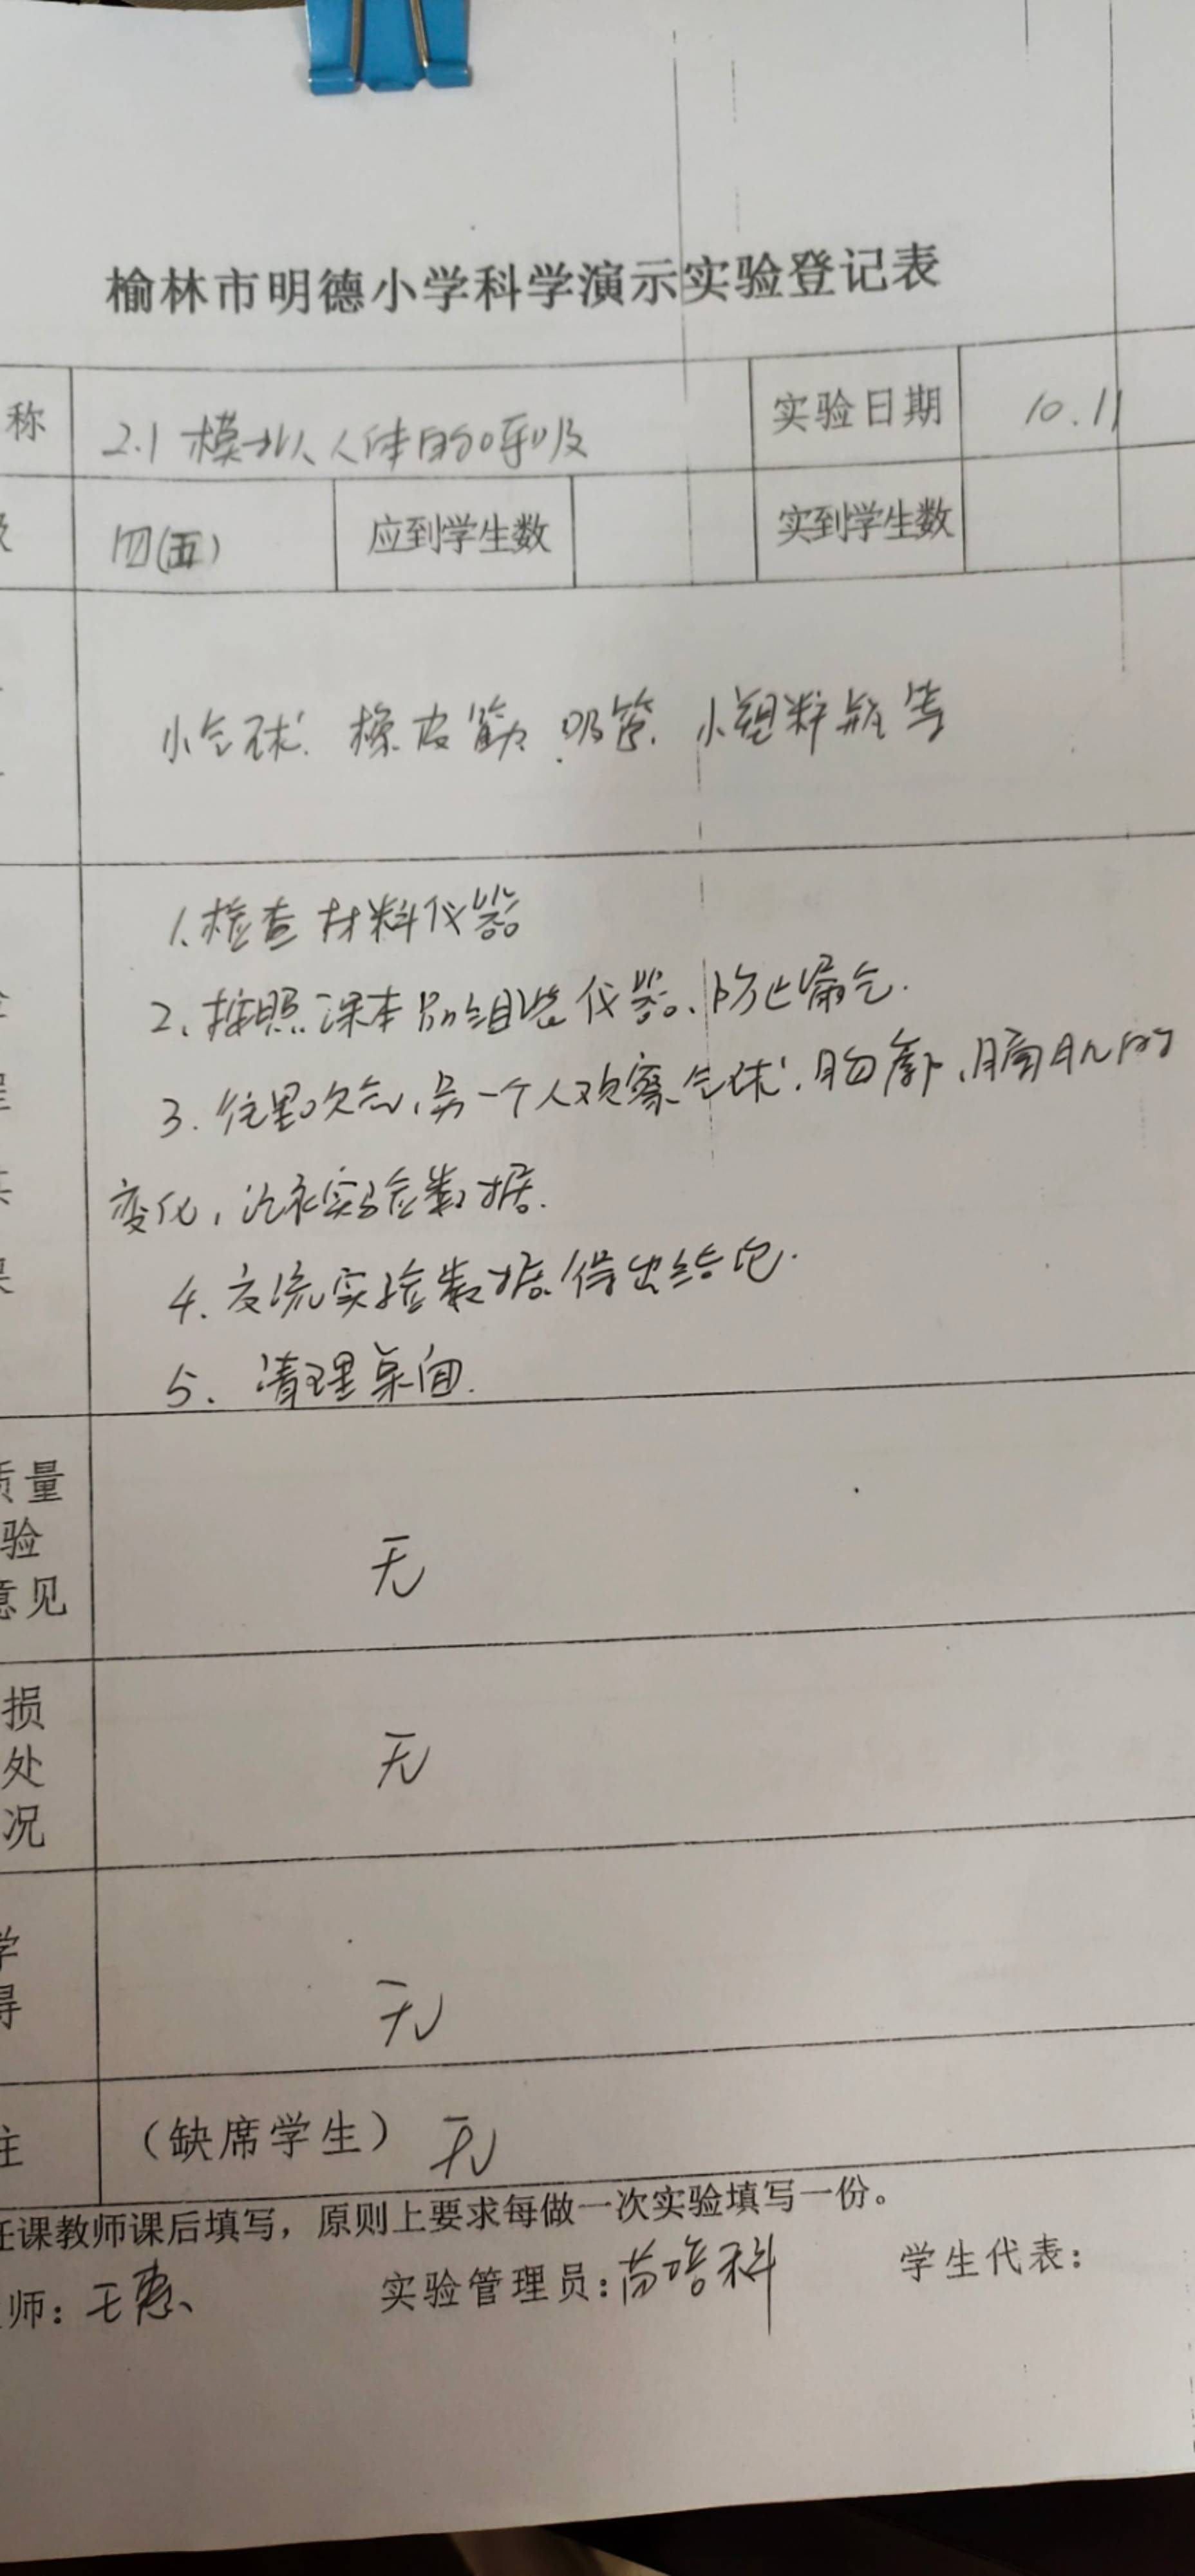 榆林市明德小学科学演示实验登记表
称 2.1 模拟人体的呼吸 实验日期 10.11
级 四(五) 应到学生数 实到学生数
小气球、橡皮筋、吸管、小塑料瓶等
1、检查材料仪器
2、按照课本 组装仪器、防止漏气.
3. 往里吹气,另一个人观察气球、胸廓、膈肌的
变化,记录实验数据.
4. 交流实验数据、得出结论.
5. 清理桌面.
质量
验
意见
无
损
处
况
无
学
得
无
注 (缺席学生) 无
任课教师课后填写,原则上要求每做一次实验填写一份。
师: 王惠 实验管理员: 苗培科 学生代表: